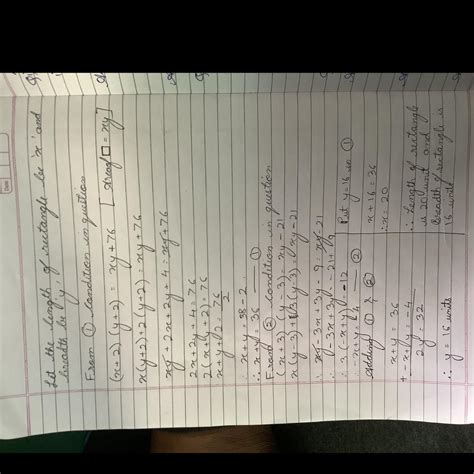 Let the length of rectangle be 'x' and
breadth be 'y'.
From ① condition in question
(x+2) (y+2) = xy+76 [Area of □ = xy]
x(y+2)+2(y+2) = xy+76
xy + 2x + 2y + 4 = xy + 76
2x + 2y + 4 = 76
2(x+y+2) = 76
x + y + 2 = 76/2
∴ x + y = 38 - 2
∴ x + y = 36 — ①
From ② condition in question
(x+3) (y-3) = xy - 21
x(y-3)+3(y-3) = xy-21
xy - 3x + 3y - 9 = xy - 21
∴ -3x + 3y = -21 + 9
∴ 3(-x+y) = -12
-x + y = -4 — ②
adding ① & ②
x + y = 36
+ -x + y = -4
2y = 32
∴ y = 16 units
Put y=16 in ①
x + 16 = 36
∴ x = 20
∴ Length of rectangle
is 20 unit and
Breadth of rectangle is
16 unit